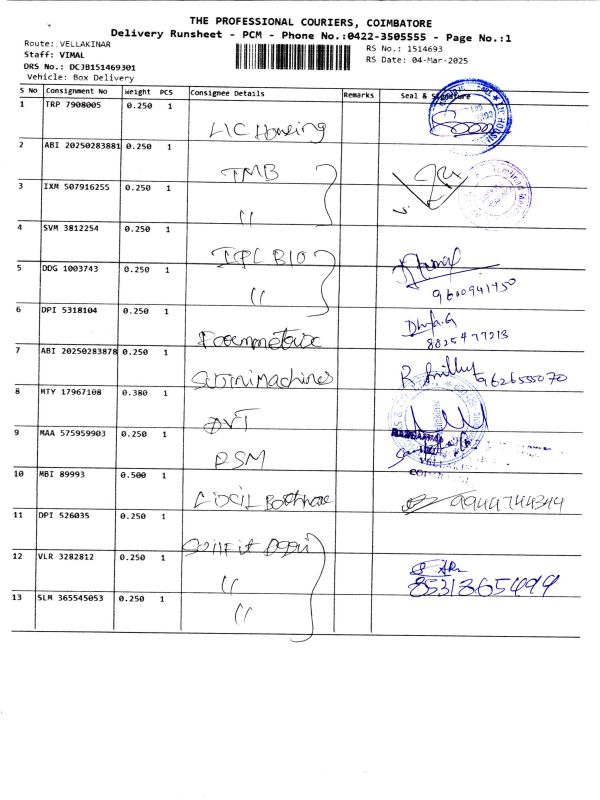 THE PROFESSIONAL COURIERS, COIMBATORE
Delivery Runsheet - PCM - Phone No.:0422-3505555 - Page No.:1
Route: VELLAKINAR
RS No.: 1514693
Staff: VIMAL
RS Date: 04-Mar-2025
DRS No.: DCJB151469301
Vehicle: Box Delivery
S No Consignment No Weight PCS Consignee Details Remarks Seal & Signature
1 TRP 7908005 0.250 1
LIC Housing
2 ABI 20250283881 0.250 1
TMB
3 IXM 507916255 0.250 1
"
4 SVM 3812254 0.250 1
IQL BIO
5 DDG 1003743 0.250 1
"
9600941750
6 DPI 5318104 0.250 1
8825477213
7 ABI 20250283878 0.250 1
9626555070
8 MTY 17967108 0.380 1
9 MAA 575959903 0.250 1
RSM
10 MBI 89993 0.500 1
9944744344
11 DPI 526035 0.250 1
12 VLR 3282812 0.250 1
"
8531865499
13 SLM 365545053 0.250 1
"